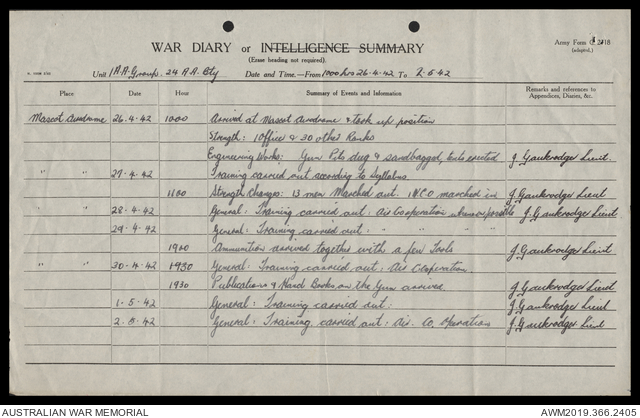 WAR DIARY or INTELLIGENCE SUMMARY
Army Form C.2118
(adapted.)
(Erase heading not required).
Unit 1 A.A. Group. 24 A.A. Bty Date and Time.—From 1000 hrs 26-4-42 To 2-5-42
Place Date Hour Summary of Events and Information Remarks and references to
Appendices, Diaries, &c.
Mascot Aerodrome 26.4.42 1000 Arrived at Mascot Aerodrome & took up position
Strength: 1 Officer & 30 other Ranks
Engineering Works: Gun Pits dug & sandbagged, tents erected J Gaukrodger Lieut.
" " 27.4.42 Training carried out according to Syllabus.
1100 Strength Changes: 13 men Marched out. 1 NCO marched in J Gaukrodger Lieut
" " 28-4-42 General: Training carried out: Air Cooperation where possible J Gaukrodger Lieut
29-4-42 General: Training carried out: " " " "
1900 Ammunition arrived together with a few Tools J Gaukrodger Lieut
" " 30-4-42 1930 General: Training carried out: Air Cooperation.
1930 Publications & Hand Books on the Gun arrived J Gaukrodger Lieut
1-5-42 General: Training carried out: J Gaukrodger Lieut
2.5.42 General: Training carried out: Air. Co. Operations J Gaukrodger Lieut
AUSTRALIAN WAR MEMORIAL AWM2019.366.2405